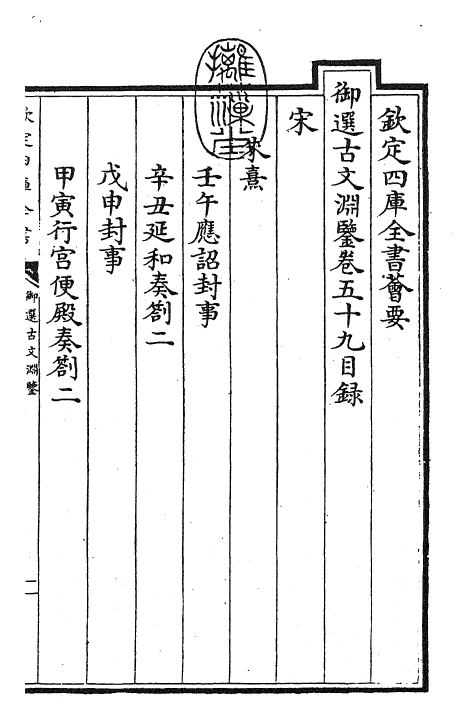 欽定四庫全書薈要
御選古文淵鑒卷五十九目錄
宋
朱熹
壬午應詔封事
辛丑延和奏劄二
戊申封事
甲寅行宮便殿奏劄二
欽定四庫全書
御選古文淵鑒
一